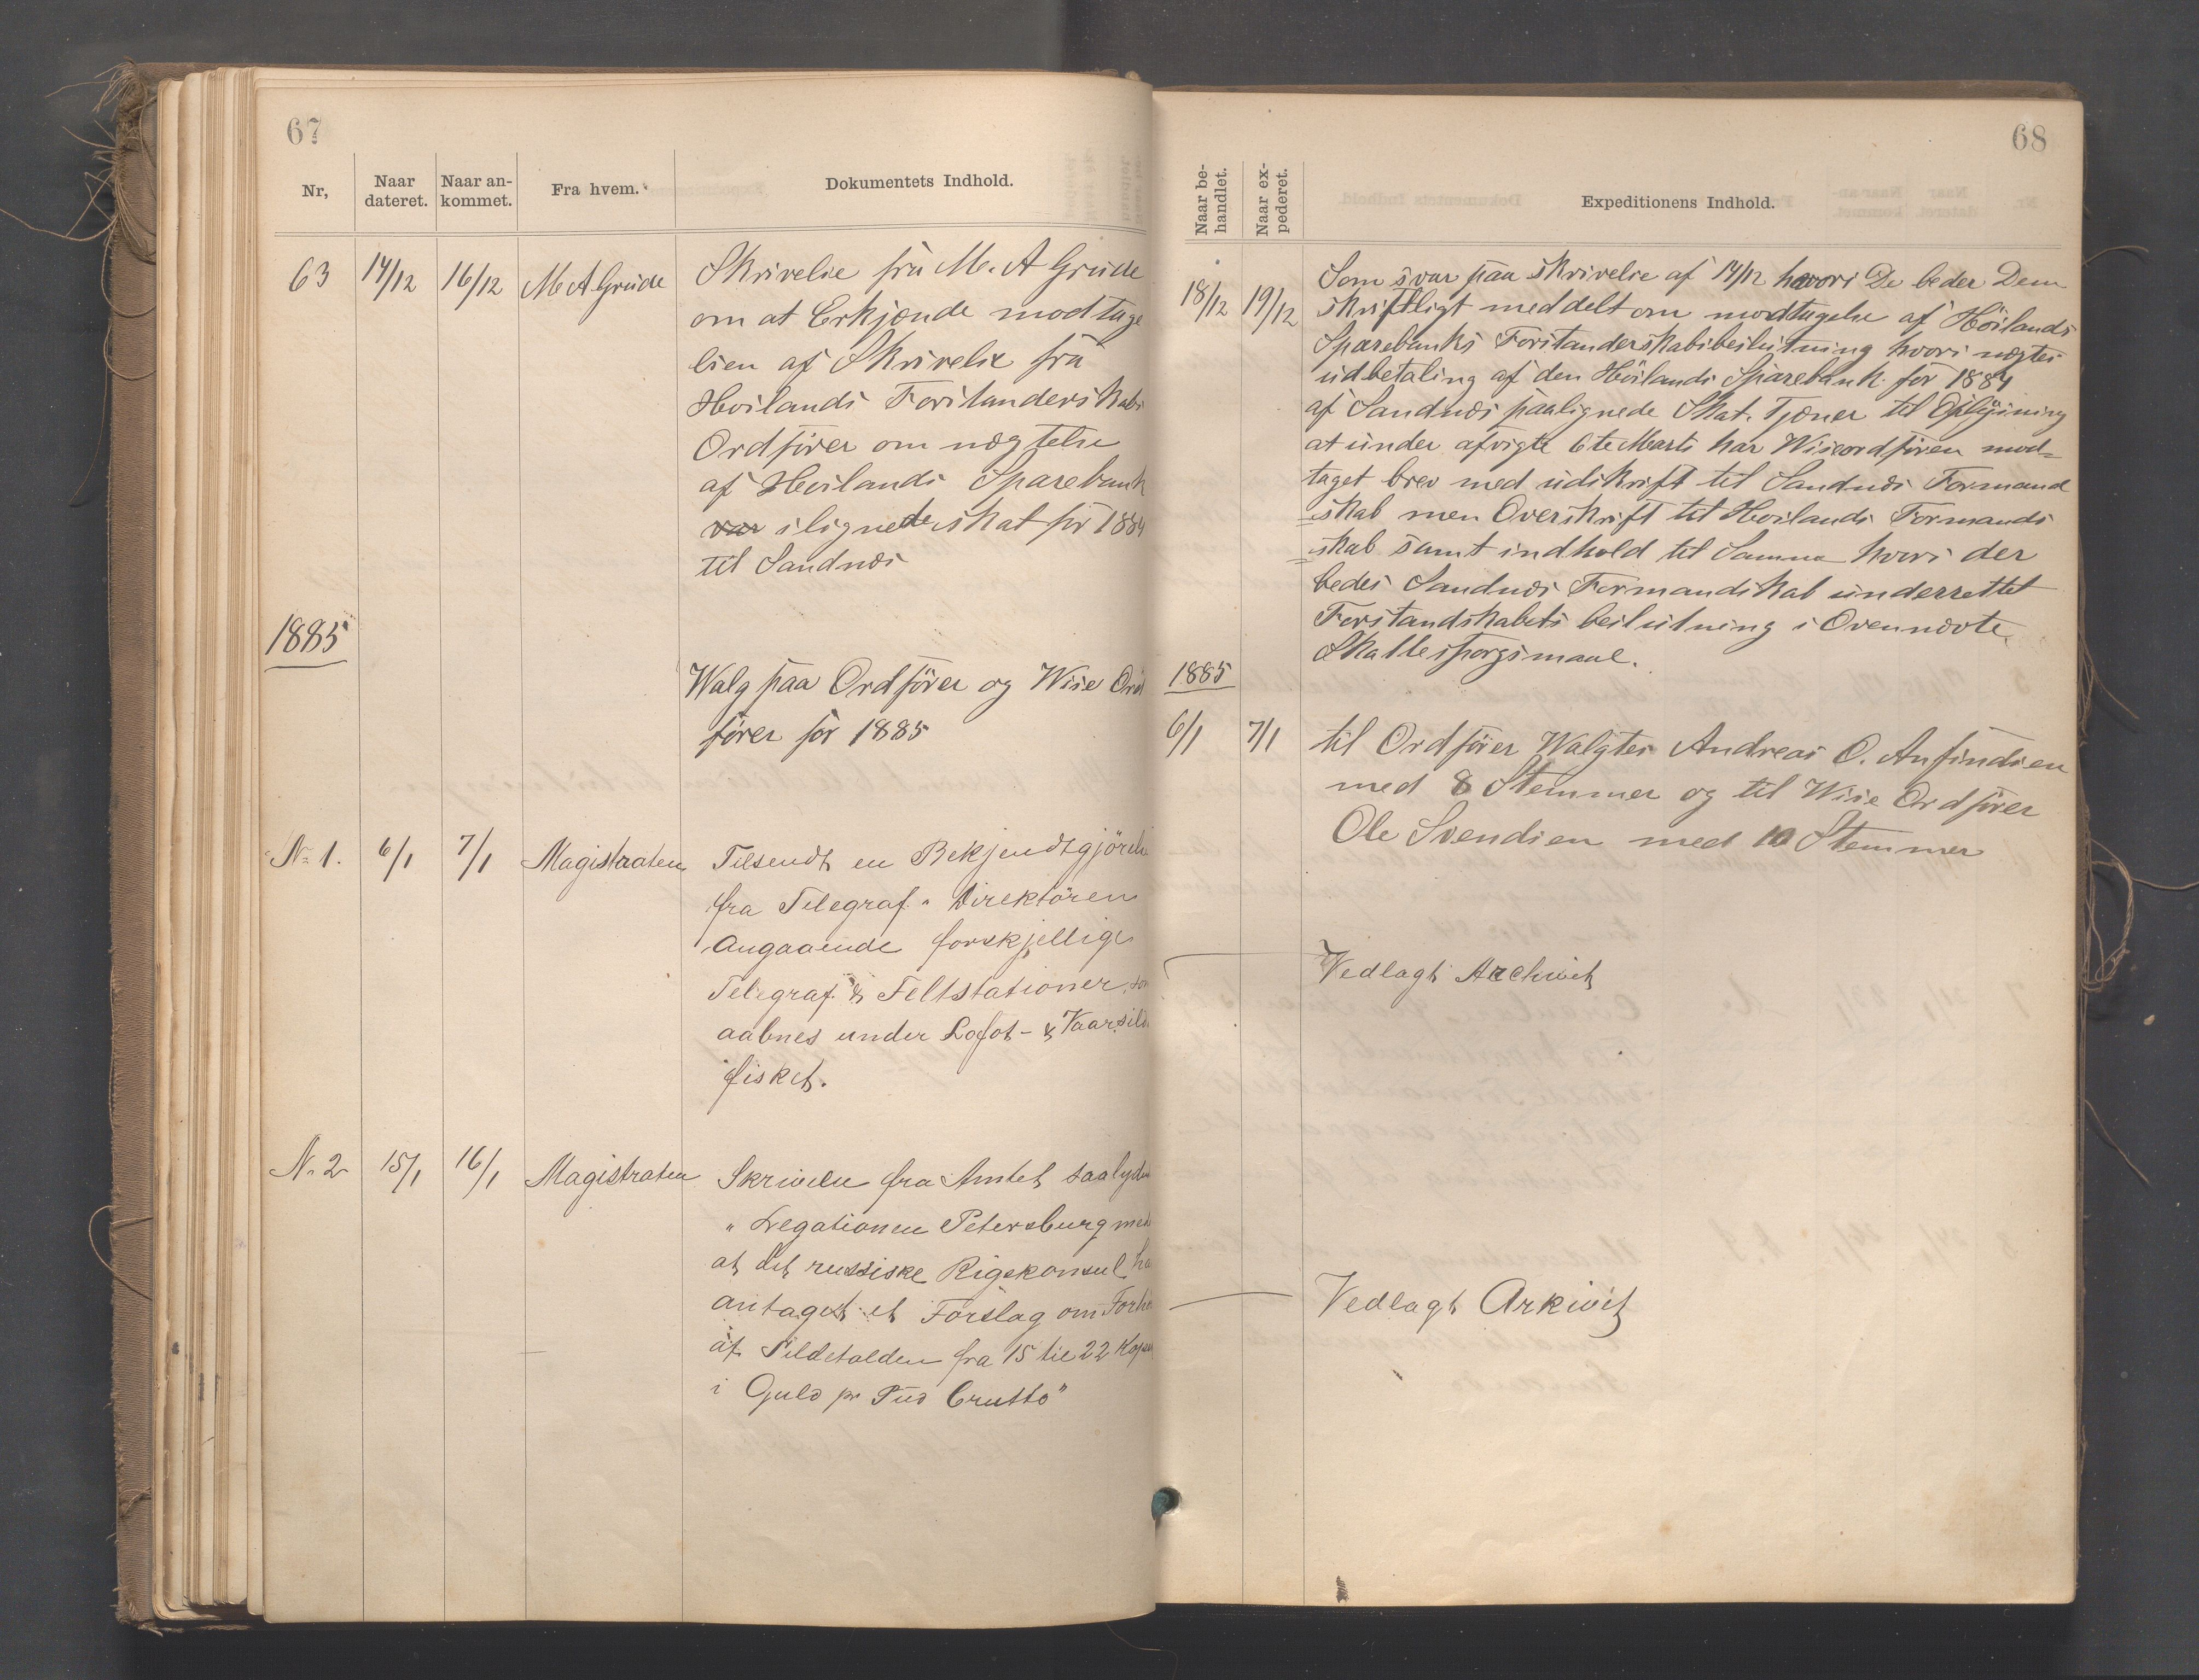 67
Nr,
Naar dateret.
Naar an-kommet.
Fra hvem.
Dokumentets Indhold.
63 14/12 16/12 M A Grude
Skrivelse fra M. A Grude
om at Erkjænde modtage
lsen af Skrivelse fra
Høilands Forstanderskabs
Ordfører om nægtelse
af Høilands Sparebank
var ilignede skat for 1884
til Sandnæs
1885
Walg paa Ordfører og Wise Ord
fører for 1885
No 1. 6/1 7/1 Magistraten
Tilsendt en Bekjendtgjörelse
fra Telegraf - Direktören
angaaende forskjellige
Telegraf & Feltstationer, som
aabnes under Lofot- & Vaarsild
fisket.
N. 2 15/1 16/1 Magistraten
Skrivelse fra Amtet saalyde
" Legationen Petersburg med
at det russiske Rigskonsul ha
antaget et Forslag om Forhö
af Sildetolden fra 15 til 22 Kope
i Guld pr Pud Brutto"
68
Naar be-handlet.
Naar ex-pederet.
Expeditionens Indhold.
18/12 19/12
Som svar paa skrivelse af 14/12 hvori De beder Dem
skriftligt meddelt om modtagelse af Höilands
Sparebanks Forstanderskabsbeslutning hvori nægtes
udbetaling af den Höilands Sparebank for 1884
af Sandnæs paalignede Skat. Tjener til Oplysning
at under afvigte 6te Marts har Wiseordføren mod=
taget brev med udskrift til Sandnæs Formand
=skab men Overskrift til Høilands Formands
=skab samt indhold til Samme hvori der
bedes Sandnæs Formandskab underrettet
Forstandskabets beslutning i Ovennævte
Skattespørgsmaal.
1885
6/1 7/1
til Ordfører Walgtes Andreas O. Anfindsen
med 8 Stemmer og til Wise Ordfører
Ole Svendsen med 10 Stemmer
Vedlagt Archivet
Vedlagt Arkivet